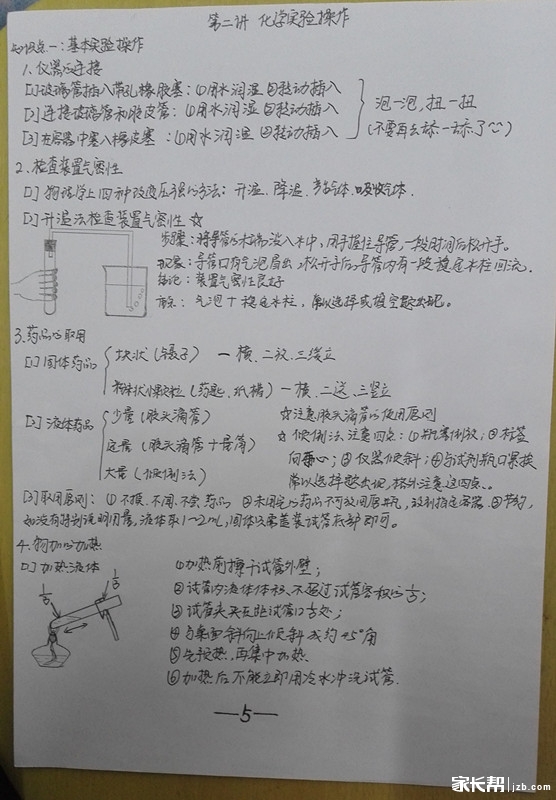 第二讲 化学实验操作
知识点一：基本实验操作
1.仪器的连接
[1]玻璃管插入带孔橡胶塞：①用水润湿 ②转动插入
[2]连接玻璃管和胶皮管：①用水润湿 ②转动插入
[3]在容器中塞入橡皮塞：①用水润湿 ②转动插入
泡一泡，扭一扭
(不要再去舔一舔了
2.检查装置气密性
[1]物理学上四种改变压强的方法：升温、降温、
[2]升温法检查装置气密性 ☆
步骤：将导管的末端浸入水中，用手握住导管，一段时间后松开手。
现象：导管口有气泡冒出，松开手后导管内有一段稳定水柱回流。
结论：装置气密性良好
气泡+稳定水柱，常以选择或填空题出现。
3.药品的取用
[1]固体药品
块状(镊子) 一横、二放、三缓立
粉末状小颗粒(药匙、纸槽) 一横、二送、三竖立
[2]液体药品
少量(胶头滴管)
定量(胶头滴管+量筒)
大量(倾倒法)
☆注意胶头滴管的使用原则
☆倾倒法，注意四点：①瓶塞倒放；②标签
向手心；③仪器倾斜；④与试剂瓶口紧挨
常以选择题出现，格外注意这四点。
[3]取用原则：①不摸、不闻、不尝药品 ②未用完的药品不可放回原瓶，放到指定容器 ③节约，
如没有特别说明用量，液体取1~2mL，固体只需盖装试管底部即可。
4.物质的加热
[1]加热液体
1/3
1/3
①加热前擦干试管外壁；
②试管内液体体积不超过试管容积的1/3；
③试管夹夹在距试管口1/3处；
④与桌面斜向上倾斜成约45°角
⑤先预热，再集中加热
⑥加热后不能立即用冷水冲洗试管.
—5—
家长帮 jzb.com